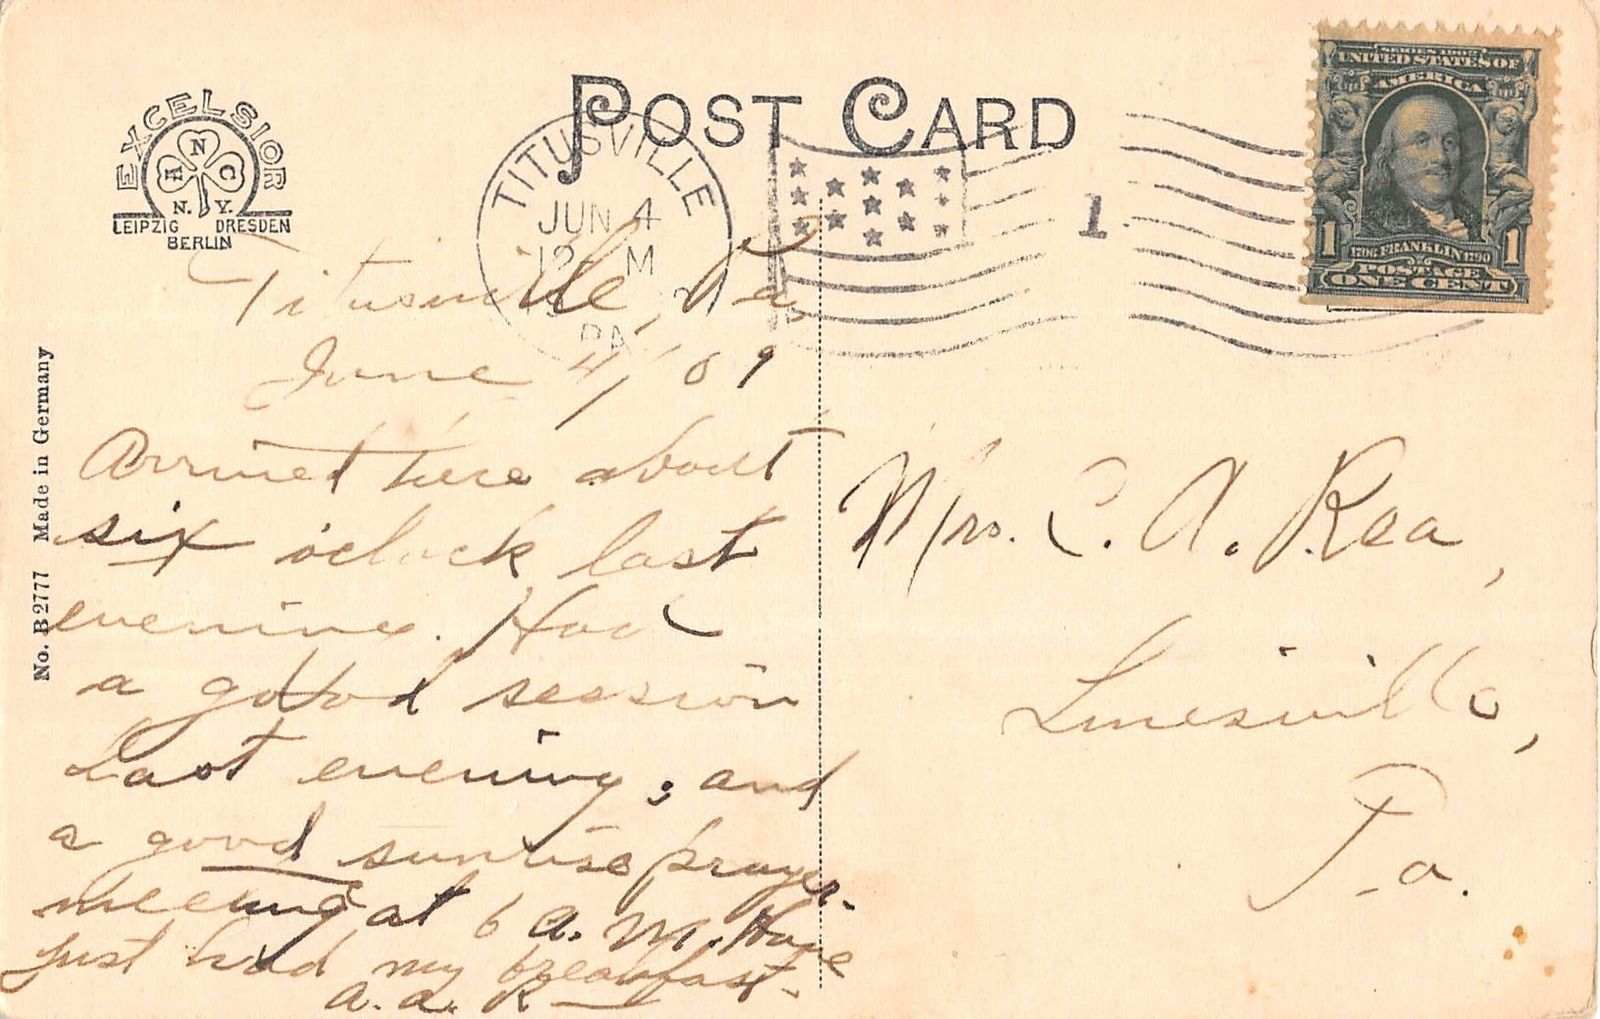 EXCELSIOR
A N C
N. Y.
LEIPZIG DRESDEN
BERLIN
POST CARD
TITUSVILLE
JUN 4
12 M
PA
1
SERIES 1902
UNITED STATES OF
AMERICA
1 1
1706 FRANKLIN 1790
POSTAGE
ONE CENT
No. B 2777 Made in Germany
Titusville, Pa,
June 4/09
Arrived here about
six o'clock last
evening. Had
a good session
last evening; and
a good sunrise prayer
meeting at 6 a.m. Have
just had my breakfast.
a. a. R
Mrs. C. A. Rea,
Linesville,
Pa.